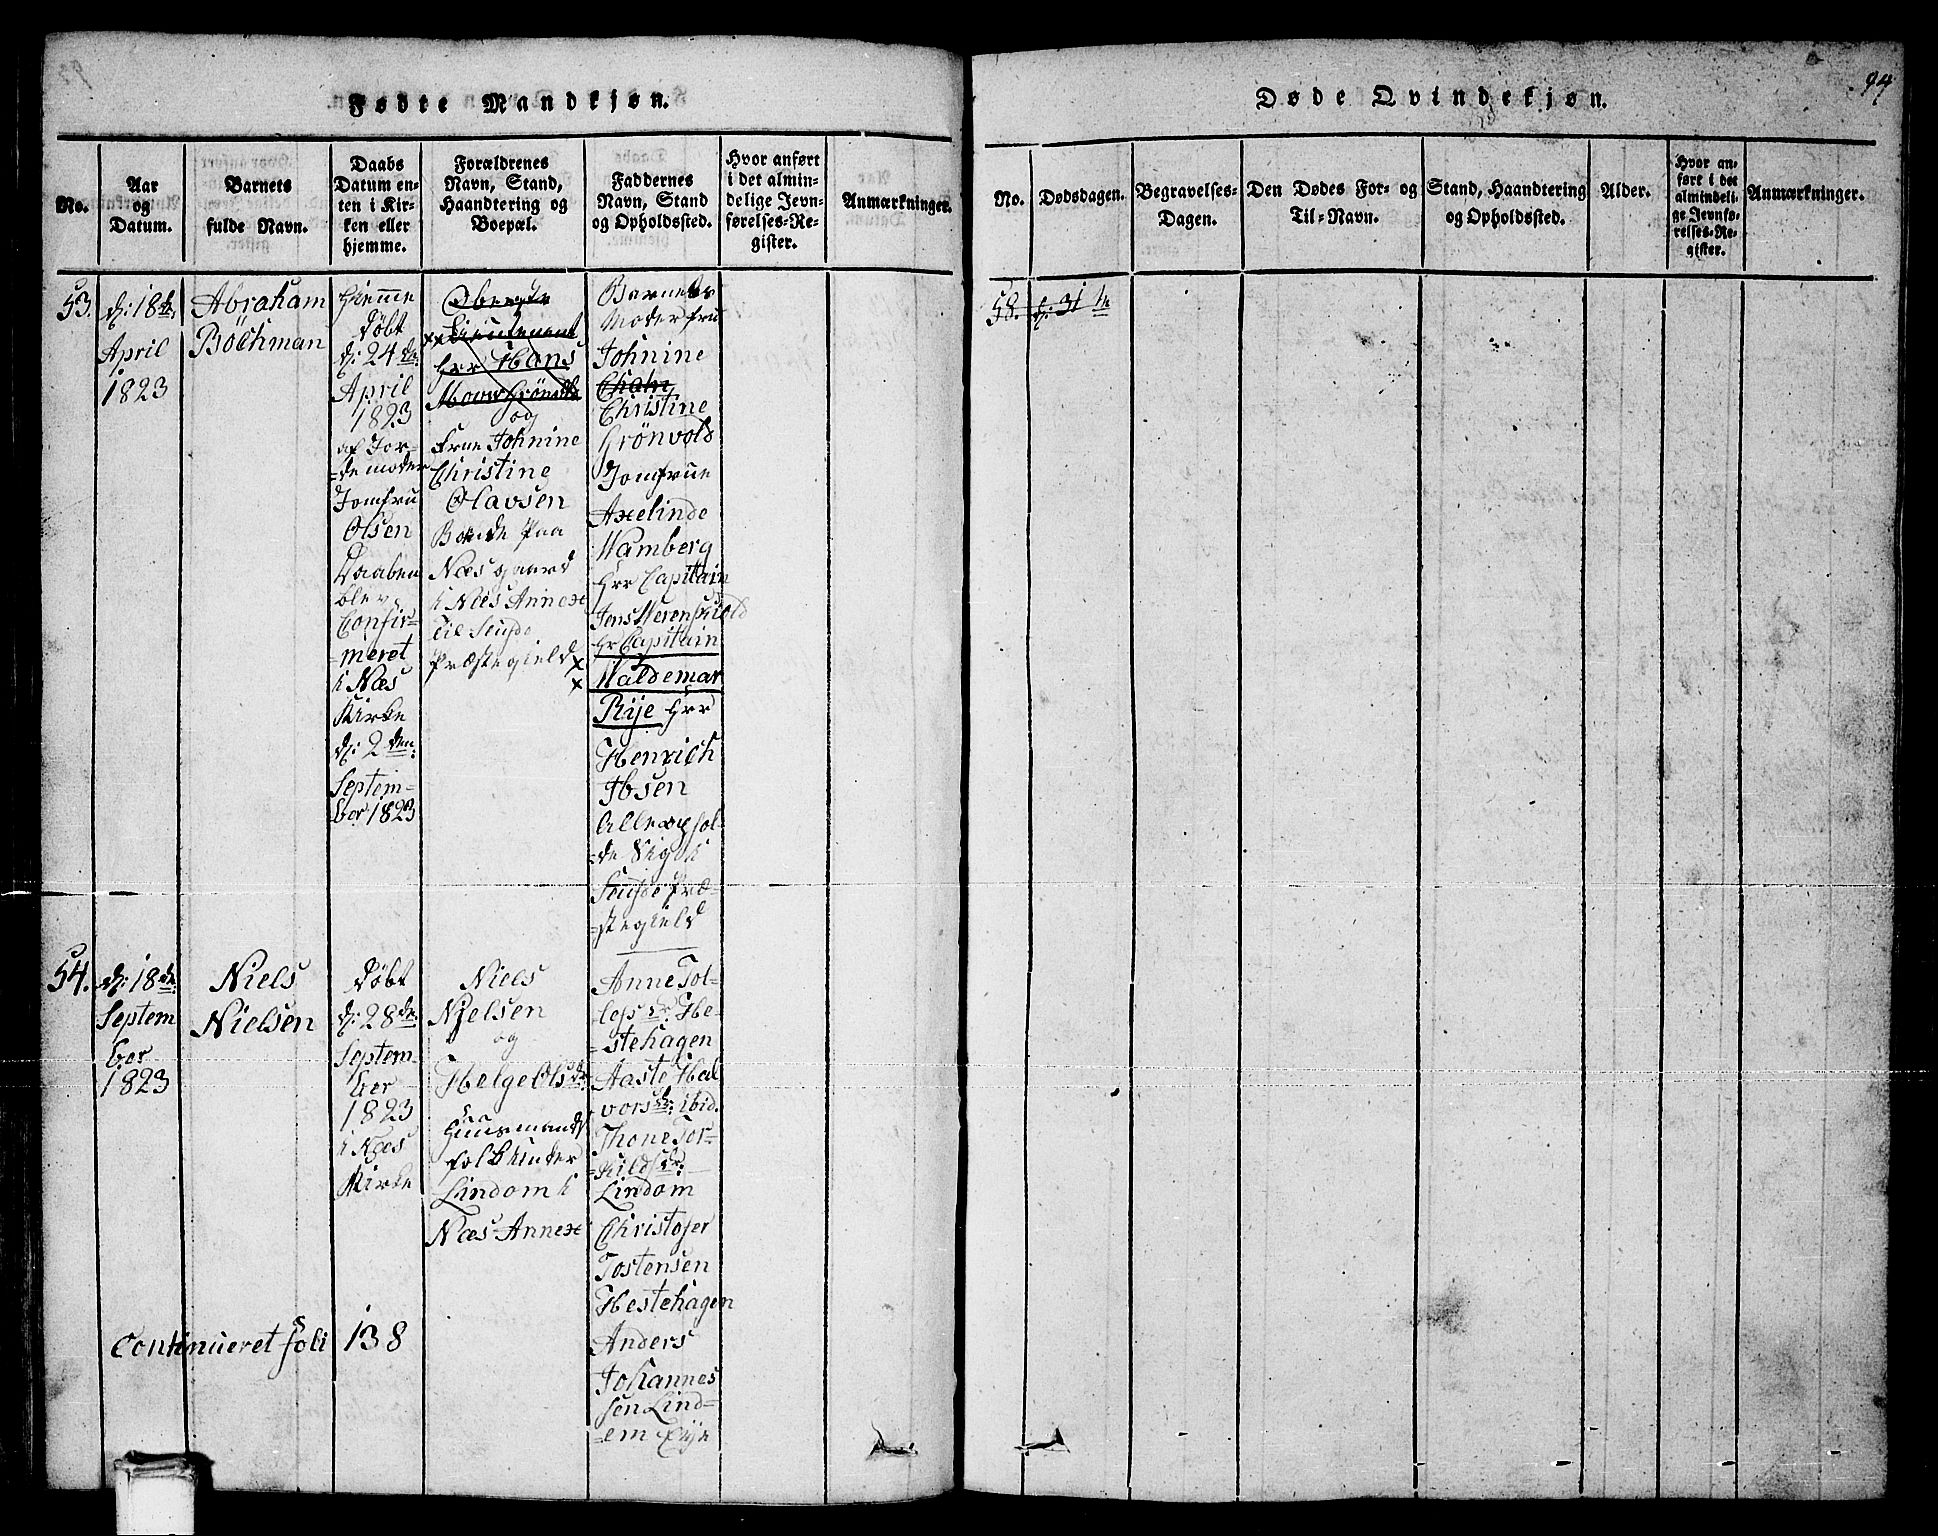 Fødte Mandkjøn.
No.
Aar
og
Datum.
Barnets
fulde Navn.
Daabs
Datum en-
ten i Kir-
ken eller
hjemme.
Forældrenes
Navn, Stand,
Haandtering og
Boepæl.
Faddernes
Navn, Stand
og Opholdssted.
Hvor anført
i det almin-
delige Jevn-
førelses-Re-
gister.
Anmærkninger.
53.
d: 18de
April
1823
Abraham
Böchman
Hiemme
döbt
d: 24de
April
1823
af Jor-
=demoder
Jomfru
Olsen
Daaben
blev
Confir-
=meret
i Næs
Kirke
d: 2den
Septem-
ber 1823
Oberste
Lieutenent
Herr Hans
og
Frue Johnine
Christine
Olavsen
Boende paa
Næsgaard
i Næs Annex
til Soude
Præstegield
Barnets
Moder fru
Johnine
Christine
Grönvold
Jomfrue
Axelinde
Wamberg
Hrr Capitain
Jens
Hr Capitain
Waldemar
Rije Hrr
Henrich
Ibsen
Alle ophol-
=de Sig i
Soude Præ-
=stegield
54.
d: 18de
Septem
ber
1823
Niels
Nielsen
Döbt
d: 28de
Septem-
ber
1823
i Næs
Kirke
Niels
Nielsen
og
Helge Olsdr
Huusmands
folk under
Lindom i
Næs Annex
Anne Tol-
lefsdr: He-
=stehagen
Aaste Hal
vorsdr: ibid.
Thone Tor-
=kildsdr:
Lindom
Christofer
Tostensen
Hestehagen
Anders
Johannes
sen Lind=
=em Eije
Continueret foli 138
94
Døde Qvindekjøn.
No.
Dødsdagen.
Begravelses-
Dagen.
Den Dødes For- og
Til-Navn.
Stand, Haandtering
og Opholdssted.
Alder.
Hvor an-
ført i det
almindeli-
ge Jevnfø-
relses-Re-
gister.
Anmærkninger.
58. d: 31te